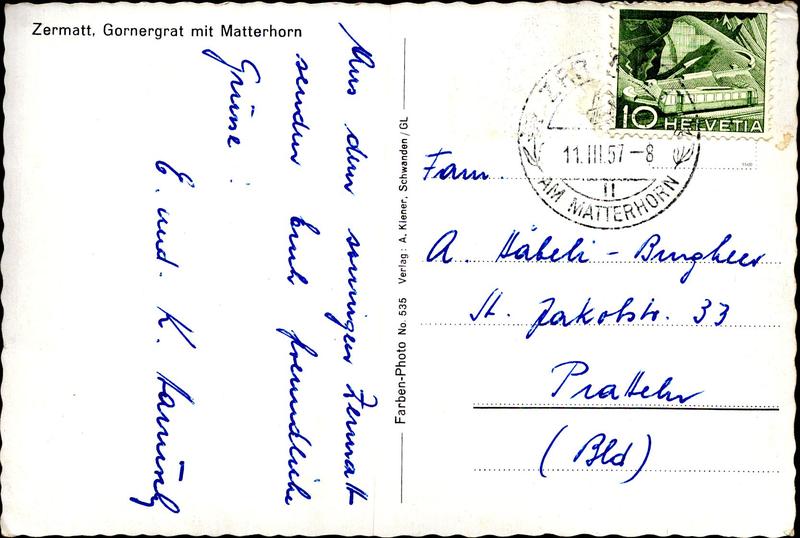 Zermatt, Gornergrat mit Matterhorn
Aus dem sonnigen Zermatt
senden Euch freundliche
Grüsse :
E. und K.
Farben-Photo No. 535 Verlag: A. Kiener, Schwanden/GL
10 HELVETIA
11.III.57-8
II
AM MATTERHORN
Fam.
A. Häbeli-Burgherr
St. Jakobstr. 33
Pratteln
(Bld)